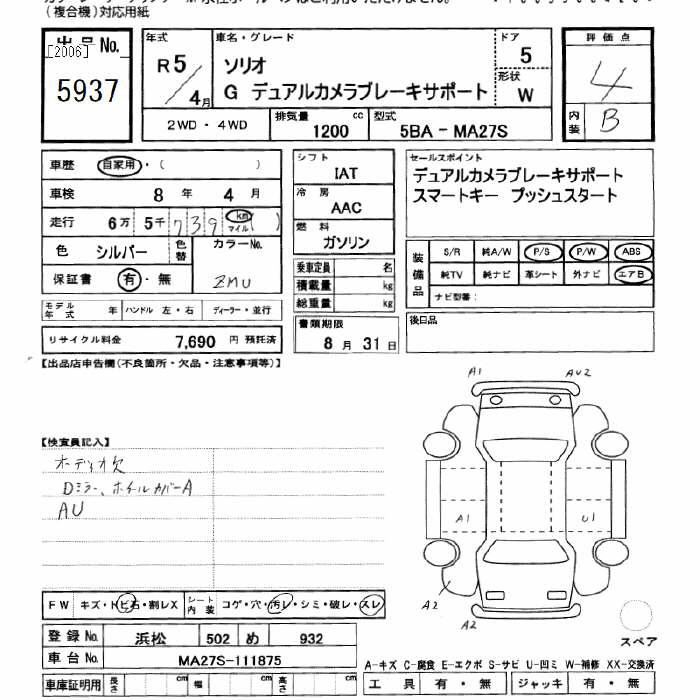 （複合機）対応用紙
出品No.
[2006]
5937
年式
R5/4月
車名・グレード
ソリオ
G デュアルカメラブレーキサポート
ドア
5
形状
W
評価点
4
内装
B
2WD・4WD
排気量
1200 cc
型式
5BA－MA27S
車歴
自家用・（ ）
車検
8 年 4 月
走行
6万 5千 739 km マイル（ ）
色
シルバー
色替
カラーNo.
ZMU
保証書
有・無
シフト
IAT
冷房
AAC
燃料
ガソリン
乗車定員 名
積載量 kg
総重量 kg
書類期限
8 月 31 日
セールスポイント
デュアルカメラブレーキサポート
スマートキー プッシュスタート
装備品
S/R 純A/W P/S P/W ABS
純TV 純ナビ 革シート 外ナビ エアB
ナビ型番：
後日品
モデル年式 年 ハンドル 左・右 ディーラー・並行
リサイクル料金 7,690 円 預託済
【出品店申告欄（不良箇所・欠品・注意事項等）】
【検査員記入】
オーディオ欠
Dミラー、ホイルカバーA
AU
A1
AU2
A1
U1
A2
A2
スペア
FW キズ・トビ石・割レX シート内装 コゲ・穴・汚レ・シミ・破レ・スレ
登録No. 浜松 502 め 932
車台No. MA27S-111875
車庫証明用 長さ cm 幅 cm 高さ cm
A-キズ C-腐食 E-エクボ S-サビ U-凹ミ W-補修 XX-交換済
工具 有・無 ジャッキ 有・無